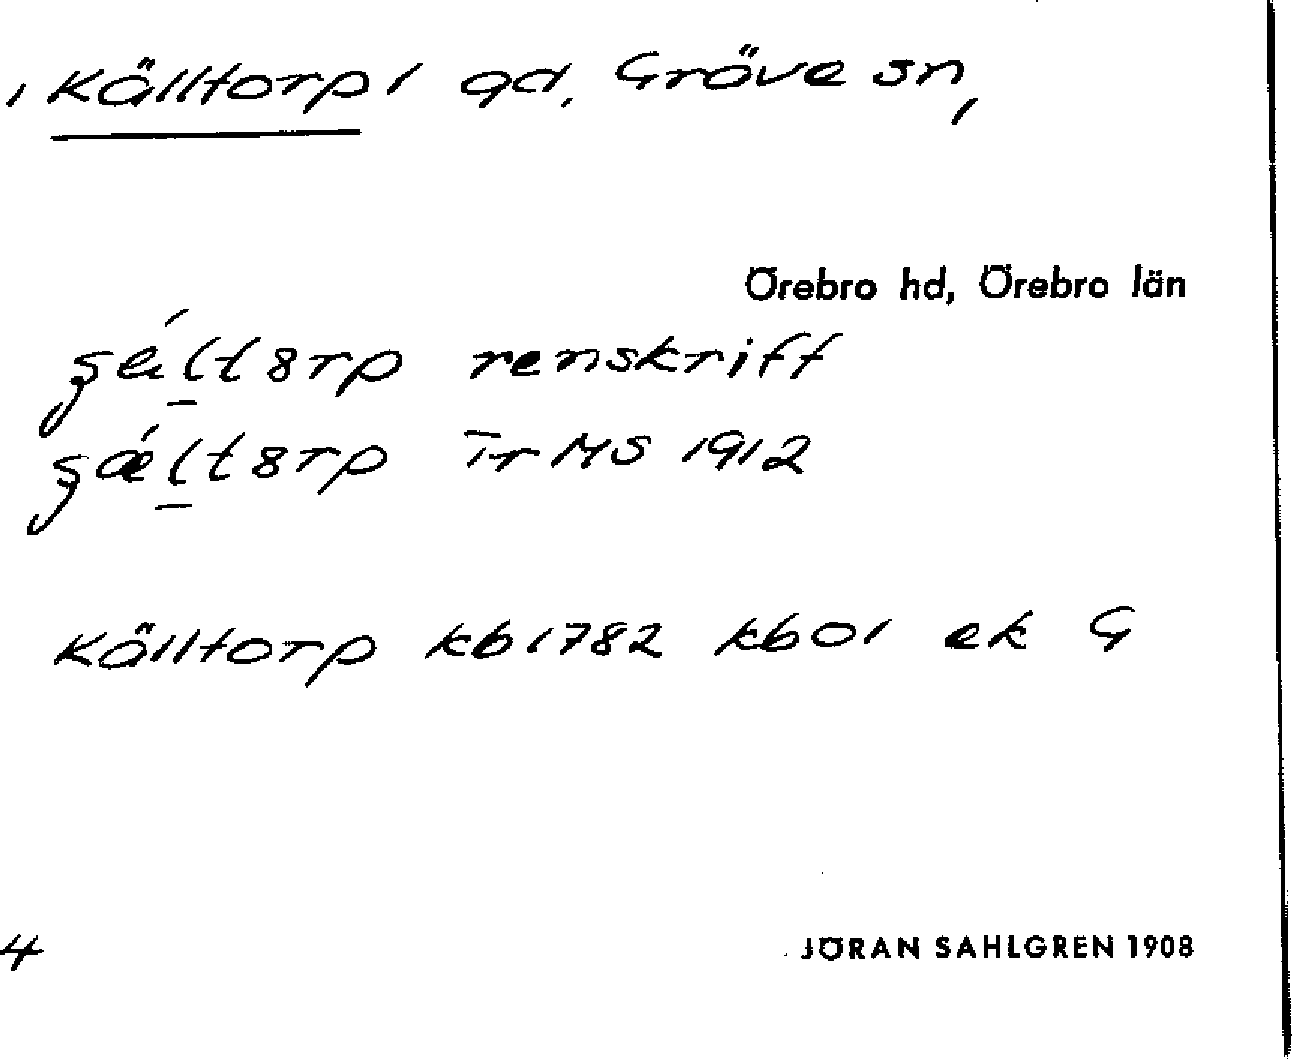 , Källtorp 1 gd. Gräve sn,
Örebro hd, Örebro län
renskrift
Tr MS 1912
Källtorp kb 1782 kb 01 ek G
4 JÖRAN SAHLGREN 1908